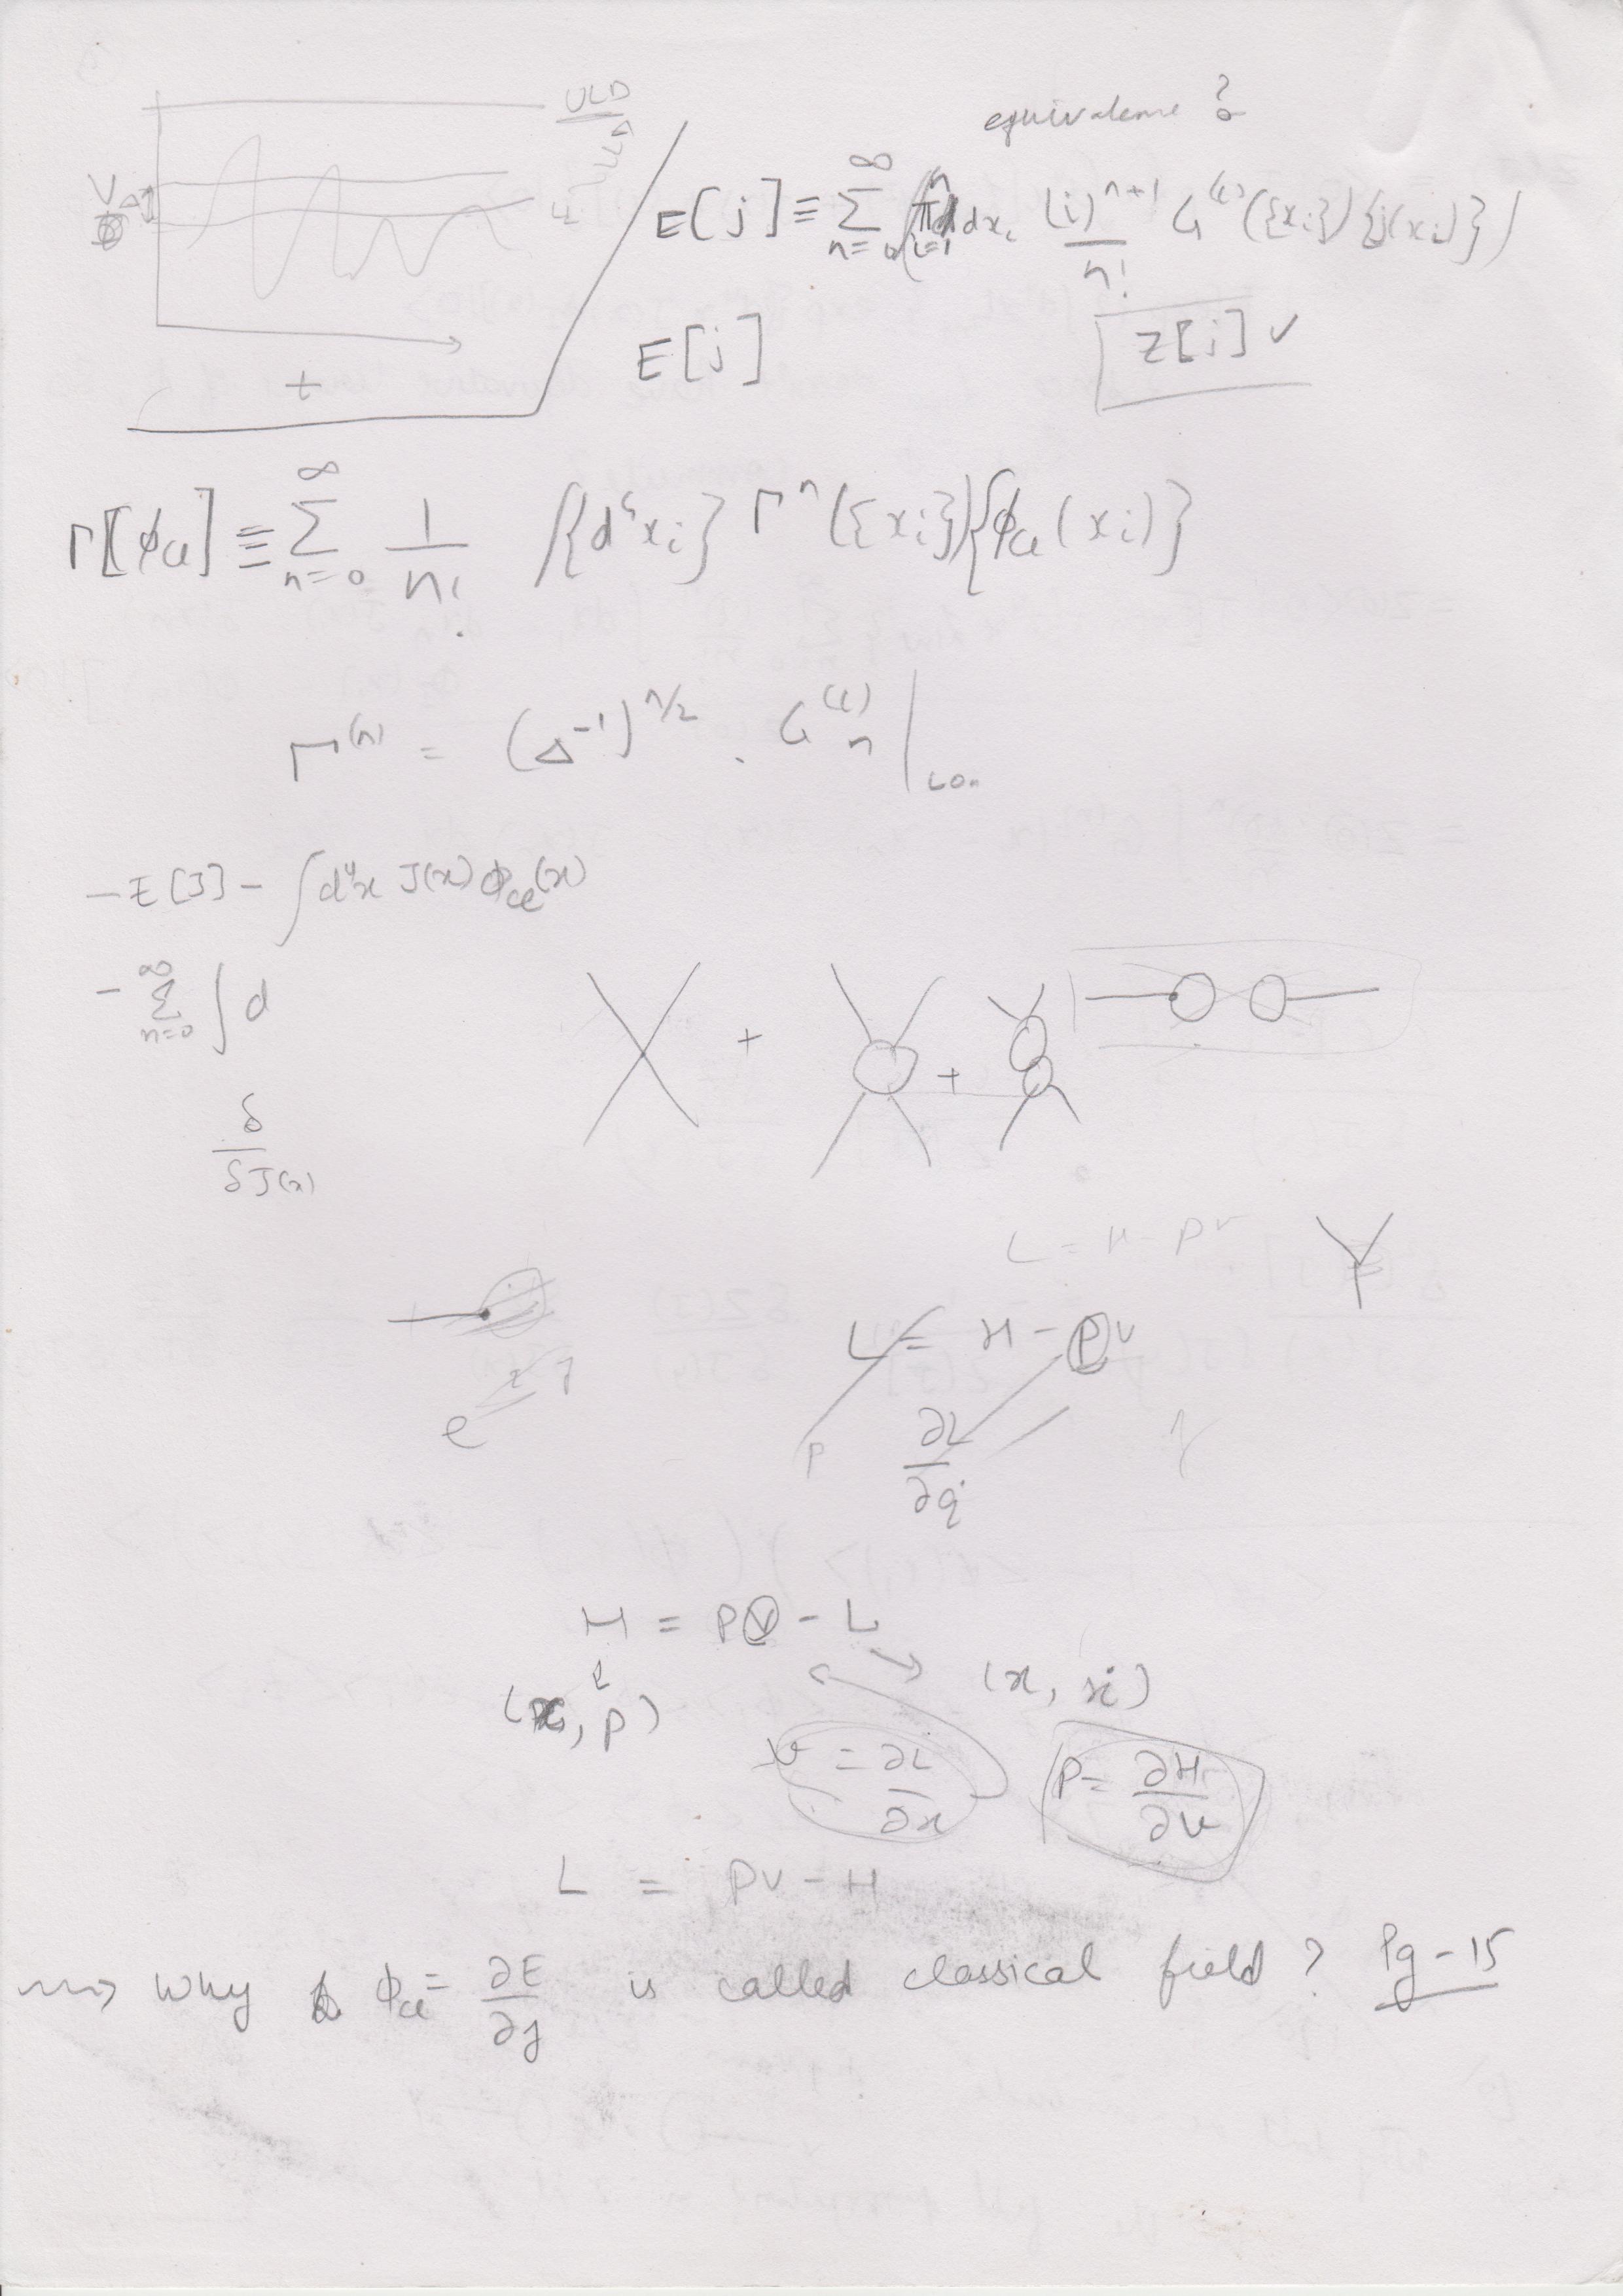 ULD
LLD
V
t
equivalence ?
E[j] ≡ ∑_{n=0}^{∞} ∫ π_{i=1}^{n} dx_i (i)^{n+1}/n! G^{(c)}({x_i}) {j(x_i)}
E[j]
Z[j] ✓
Γ[ϕ_cl] ≡ ∑_{n=0}^{∞} 1/n! ∫{d⁴x_i} Γ^n({x_i}){ϕ_cl(x_i)}
Γ^{(n)} = (Δ^{-1})^{n/2} . G_n^{(c)} |_{LO.}
-E[J] - ∫d⁴x J(x) ϕ_cl(x)
- ∑_{n=0}^{∞} ∫d
+ +
δ/δJ(x)
L = H - PV
L = H - PV
e
P
∂L/∂q̇
H = PV - L
(x, p)
(x, ẋ)
v = ∂L/∂x
P = ∂H/∂v
L = PV - H
⇝ Why ϕ_cl = ∂E/∂J is called classical field ? Pg-15